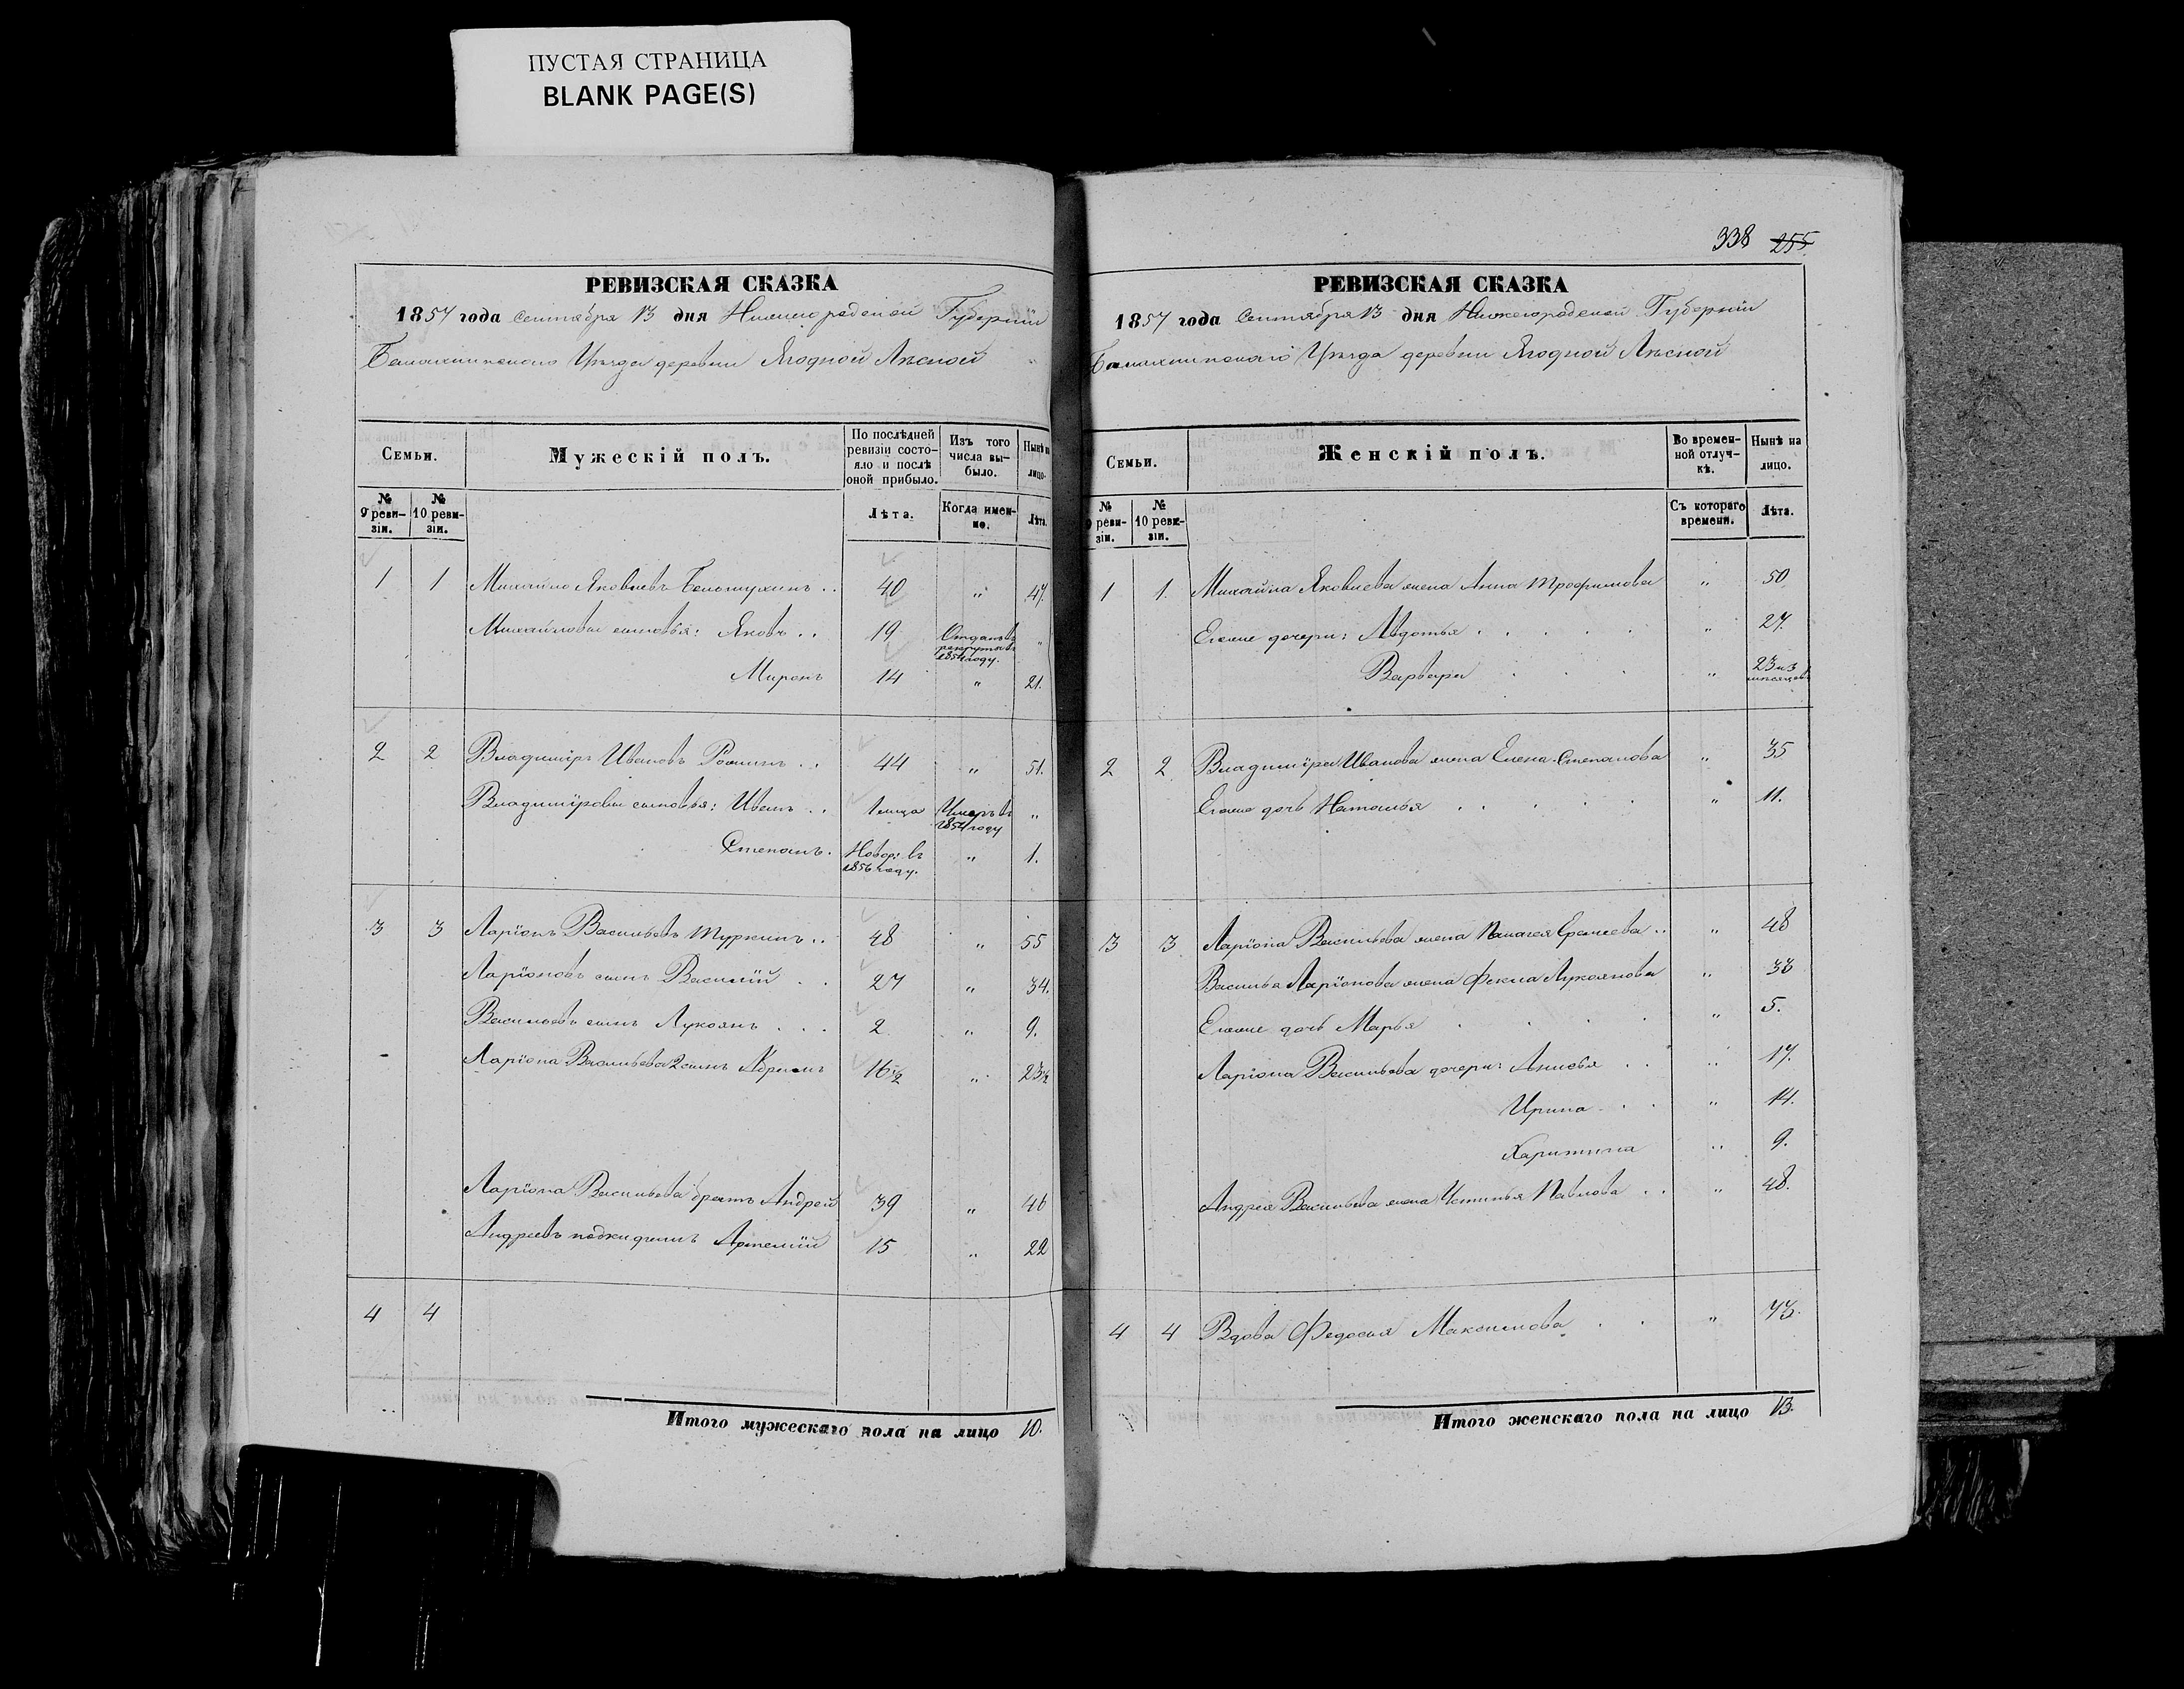 ПУСТАЯ СТРАНИЦА
BLANK PAGE(S)
РЕВИЗСКАЯ СКАЗКА
1857 года Сентября 13 дня Нижегородской Губерніи
Балахнинскаго Уѣзда деревни Ягодной Лѣсной
Семьи.
Мужескій полъ.
По послѣдней ревизіи состояло и послѣ оной прибыло.
Изъ того числа выбыло.
Нынѣ на лицо.
№ 9 ревизіи.
№ 10 ревизіи.
Лѣта.
Когда именно.
Лѣта.
1 1 Михайло Яковлевъ .. 40 " 47.
Михайловы сыновья: Яковъ .. 19 Отданъ въ рекруты въ 1854 году. "
Миронъ 14 " 21.
2 2 Владиміръ Ивановъ .. 44 " 51.
Владиміровы сыновья: Иванъ .. 1 мѣсяца Умеръ въ 1854 году "
Степанъ. Новор: въ 1856 году. " 1.
3 3 Ларіонъ Васильевъ Туркинъ .. 48 " 55
Ларіоновъ сынъ Василій .. 27 " 34.
Васильевъ сынъ Лукоянъ ... 2 " 9.
Ларіона Васильева 2 сынъ Адріанъ 16 1/2 " 23 1/2
Ларіона Васильева братъ Андрей 39 " 46
Андреевъ подкидышъ Артемій 15 " 22
4 4
Итого мужескаго пола на лицо 10.
338 255
РЕВИЗСКАЯ СКАЗКА
1857 года Сентября 13 дня Нижегородской Губерніи
Балахнинскаго Уѣзда деревни Ягодной Лѣсной
Семьи.
Женскій полъ.
Во временной отлучкѣ.
Нынѣ на лицо.
№ 9 ревизіи.
№ 10 ревизіи.
Съ котораго времени.
Лѣта.
1 1. Михайла Яковлева жена Анна Трофимова " 50
Егоже дочери: Авдотья . . . . " 27.
Варвара . . . " 23 и 3 мѣсяцовъ
2 2 Владиміра Иванова жена Елена Степанова " 35
Егоже дочь Наталья . . . . " 11.
3 3 Ларіона Васильева жена Палагея Еремеева .. " 48
Василья Ларіонова жена Фекла Лукоянова " 33
Егоже дочь Марья . . . . " 5.
Ларіона Васильева дочери: Анисья . . " 17.
Ирина . . " 14.
Харитина " 9.
Андрея Васильева жена Устинья Павлова . . " 48.
4 4 Вдова Федосья Максимова . . " 73.
Итого женскаго пола на лицо 13.